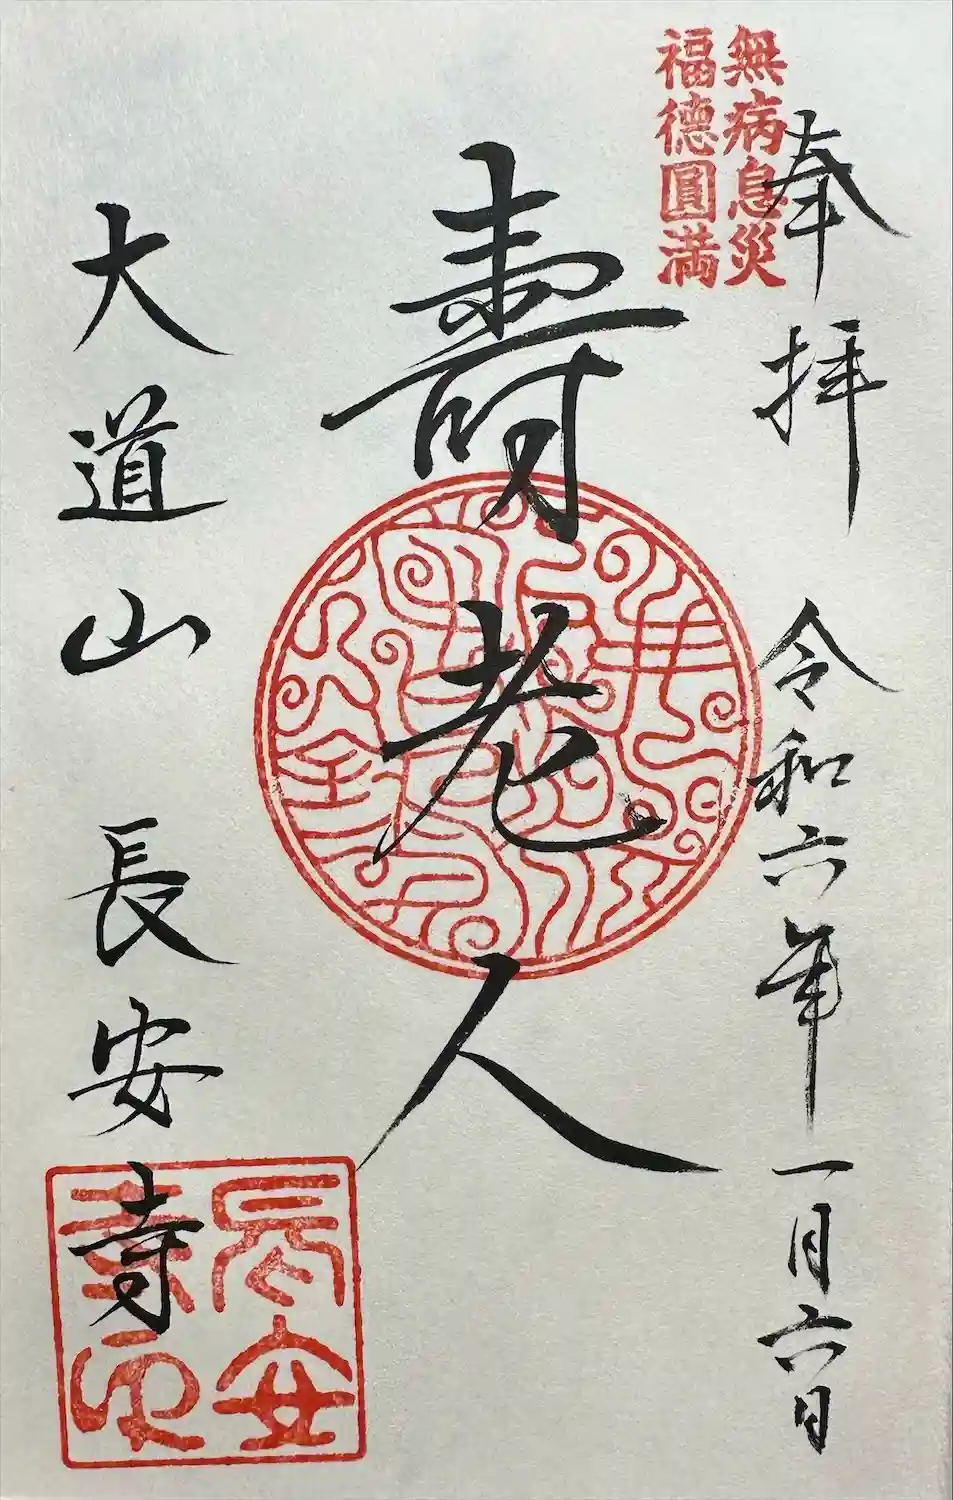 無病息災
福德圓満
奉拝 令和六年一月六日
壽老人
大道山長安寺
長安
寺印